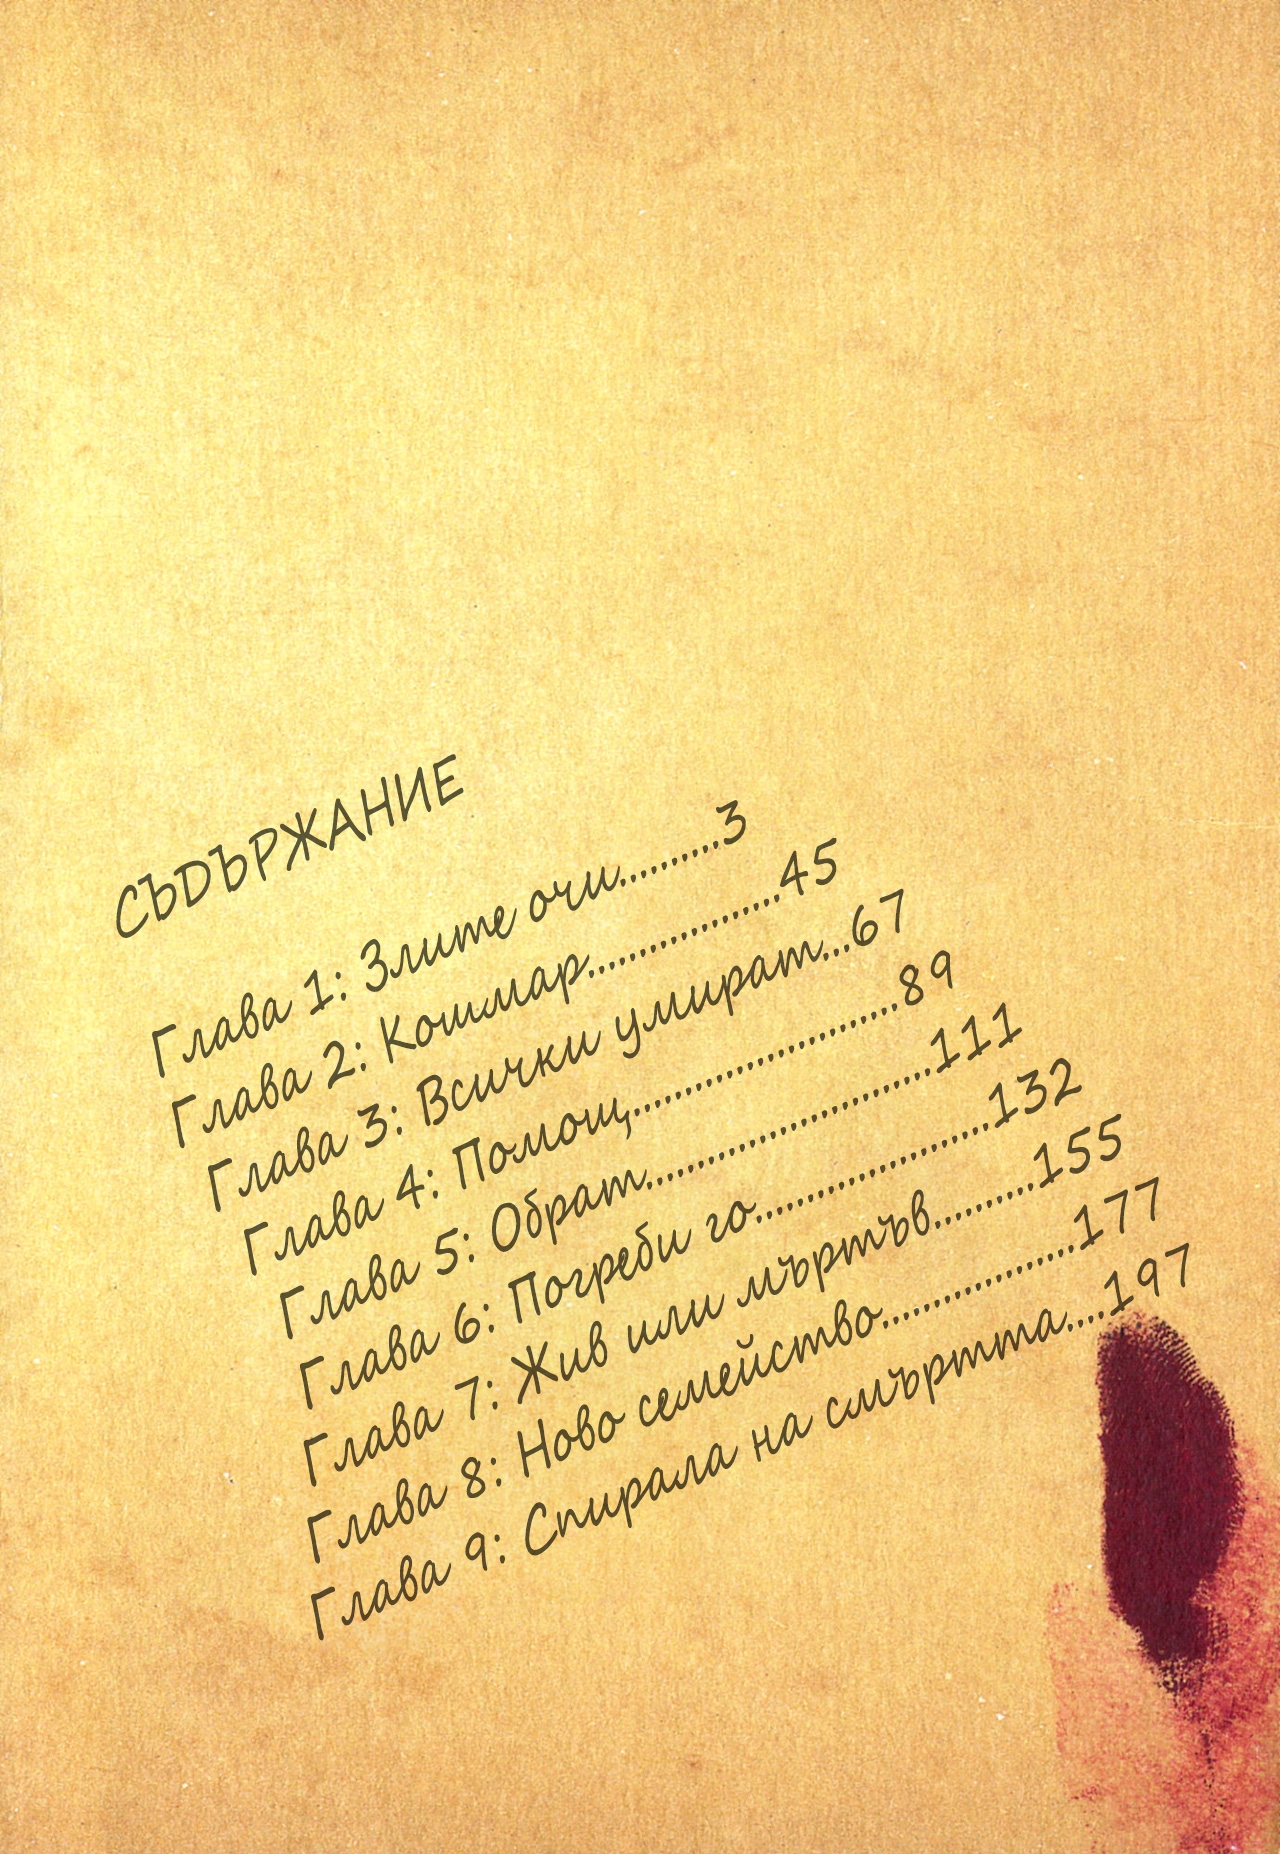 СЪДЪРЖАНИЕ
Глава 1: Злите очи..........3
Глава 2: Кошмар...................45
Глава 3: Всички умират...67
Глава 4: Помощ..........................89
Глава 5: Обрат............................111
Глава 6: Погреби го.......................132
Глава 7: Жив или мъртъв..........155
Глава 8: Ново семейство...................177
Глава 9: Спирала на смъртта....197